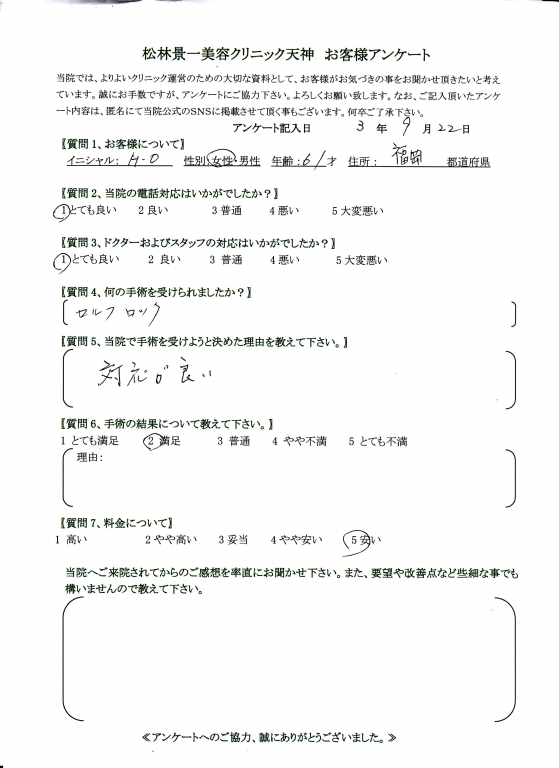 松林景一美容クリニック天神　お客様アンケート
当院では、よりよいクリニック運営のための大切な資料として、お客様がお気づきの事をお聞かせ頂きたいと考え
ています。誠にお手数ですが、アンケートにご協力下さい。よろしくお願い致します。なお、ご記入頂いたアンケ
ート内容は、匿名にて当院公式のSNSに掲載させて頂く事もございます。何卒ご了承下さい。
アンケート記入日　3 年 9 月 22 日
〖質問 1、お客様について〗
イニシャル：H-O　性別 女性・男性　年齢：61才　住所：福岡　都道府県
〖質問 2、当院の電話対応はいかがでしたか？〗
1とても良い　2 良い　3 普通　4 悪い　5 大変悪い
〖質問 3、ドクターおよびスタッフの対応はいかがでしたか？〗
1とても良い　2 良い　3 普通　4 悪い　5 大変悪い
〖質問 4、何の手術を受けられましたか？〗
セルフロック
〖質問 5、当院で手術を受けようと決めた理由を教えて下さい。〗
対応が良い
〖質問 6、手術の結果について教えて下さい。〗
1 とても満足　2 満足　3 普通　4 やや不満　5 とても不満
理由：
〖質問 7、料金について〗
1 高い　2 やや高い　3 妥当　4 やや安い　5 安い
当院へご来院されてからのご感想を率直にお聞かせ下さい。また、要望や改善点など些細な事でも
構いませんので教えて下さい。
≪アンケートへのご協力、誠にありがとうございました。≫